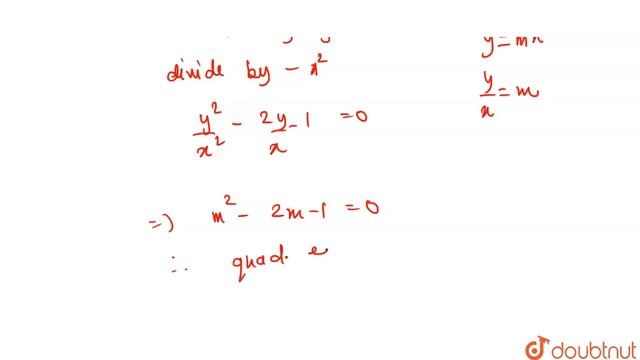 y = mx
divide by - x²
y/x = m
y²/x² - 2y/x - 1 = 0
=) m² - 2m - 1 = 0
∴ quad. e
doubtnut